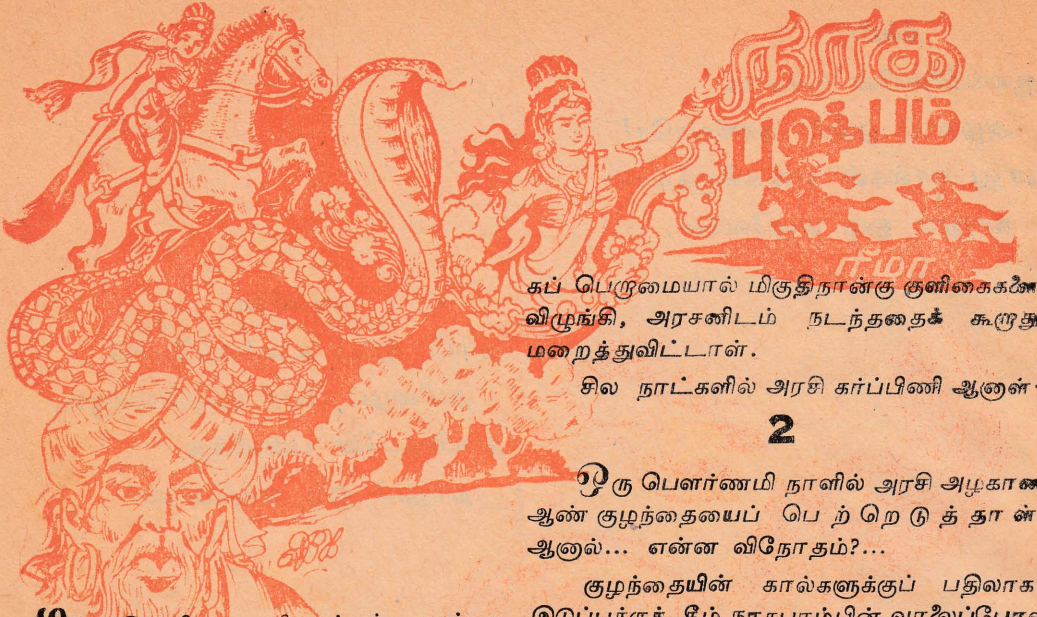 நாக
புஷ்பம்
ரிமா
கப் பெருமையால் மிகுதிநான்கு குளிகைகளை
விழுங்கி, அரசனிடம் நடந்ததைக் கூறாது
மறைத்துவிட்டாள்.
சில நாட்களில் அரசி கர்ப்பிணி ஆனாள்
2
ஒரு பௌர்ணமி நாளில் அரசி அழகான
ஆண் குழந்தையைப் பெற்றெடுத்தாள்
ஆனால்... என்ன விநோதம்?...
குழந்தையின் கால்களுக்குப் பதிலாக
இடுப்புக்குக் கீழ் நாகபாம்பின் வாலைப்போல